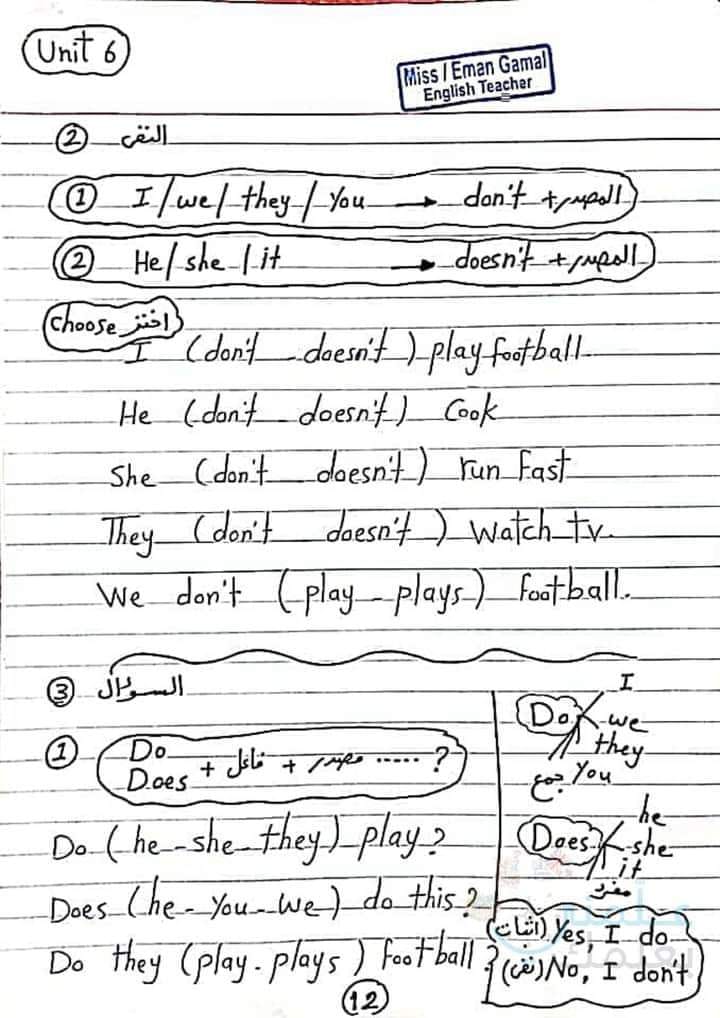 Unit 6
Miss / Eman Gamal
English Teacher
② النفى
① I / we / they / You → don't + المصدر
② He / she / it → doesn't + المصدر
choose اختر
I (don't - doesn't) play football
He (don't - doesn't) Cook
She (don't doesn't) run fast
They (don't doesn't) watch tv.
We don't (play - plays) football.
③ السؤال
① Do
Does + فاعل + مصدر ..... ?
Do (he - she - they) play?
Does (he - You - We) do this?
Do they (play - plays) football?
Do
I
we
they
You
جمع
Does
he
she
it
مفرد
(اثبات) Yes, I do
(نفى) No, I don't
12